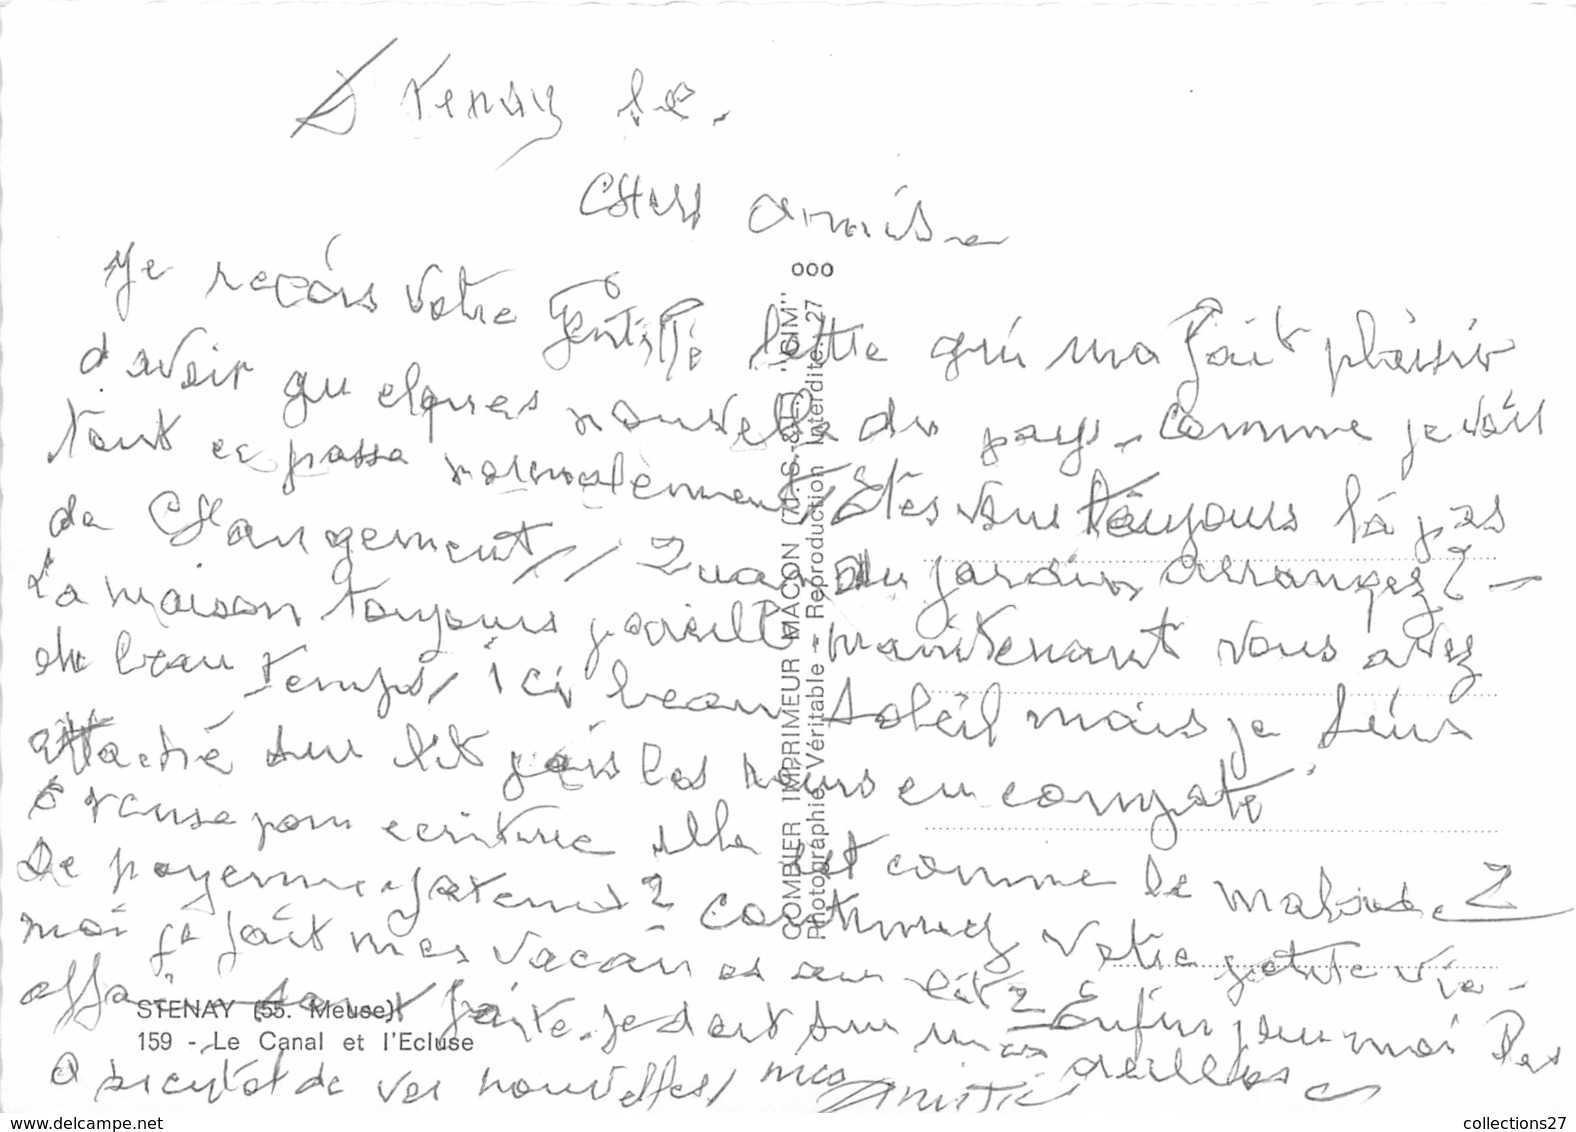 Stenay le.
Chers amis
Je reçois votre Gentille lettre qui ma fait plaisir
d'avoir quelques nouvelle du pays. Comme je vois
tout ce passa normalement, Êtes vous toujours là pas
de Changement // du jardin arrangez ? -
La maison toujours pareille maintenant vous avez
du beau temps, ici beau soleil mais je suis
attaché sur lit jais les en compote
excuse pour ecriture elle est comme le malade. 2
De payerme jatend 2 continuez votre petite vie.
moi je fait mes vacances au lit 2 Enfin pour moi les
affair sont faite. je dort sur mes oreilles
A bientot de vos nouvelles, mes Amitié
STENAY (55. Meuse)
159 - Le Canal et l'Ecluse
COMBIER IMPRIMEUR MACON (J.S. & L.) "CIM"
Photographie Véritable - Reproduction Interdite. 27
collections27